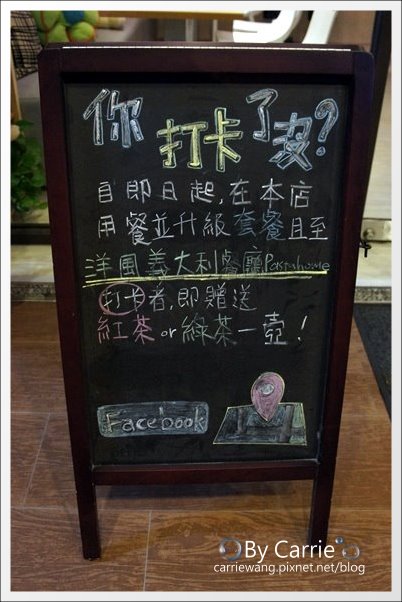 你打卡了沒?
自即日起,在本店
用餐並升級套餐且至
洋風義大利餐廳Pastahouse
打卡者,即贈送
紅茶or綠茶一壺!
Facebook
By Carrie
carriewang.pixnet.net/blog